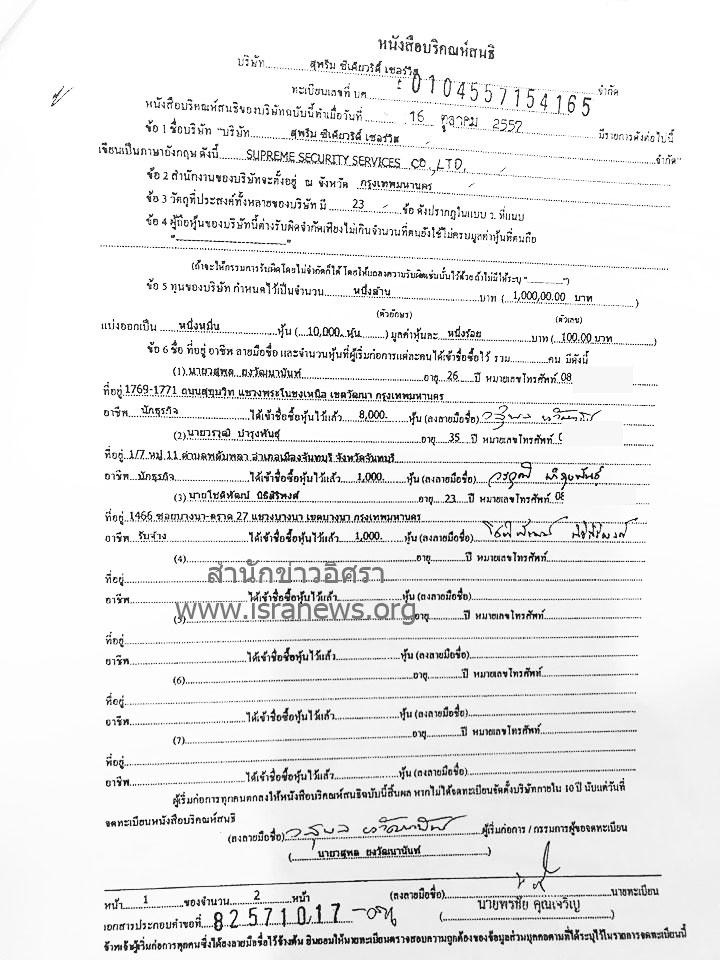 หนังสือบริคณห์สนธิ
บริษัท สุพรีม ซีเคียวริตี้ เซอร์วิส จำกัด
ทะเบียนเลขที่ บค. 0104557154165
หนังสือบริคณห์สนธิของบริษัทฉบับนี้ทำเมื่อวันที่ 16 ตุลาคม 2557 มีรายการดังต่อไปนี้
ข้อ 1 ชื่อบริษัท "บริษัท สุพรีม ซีเคียวริตี้ เซอร์วิส จำกัด"
เขียนเป็นภาษาอังกฤษ ดังนี้ SUPREME SECURITY SERVICES CO.,LTD.
ข้อ 2 สำนักงานของบริษัทจะตั้งอยู่ ณ จังหวัด กรุงเทพมหานคร
ข้อ 3 วัตถุที่ประสงค์ทั้งหลายของบริษัท มี 23 ข้อ ดังปรากฏในแบบ ว. ที่แนบ
ข้อ 4 ผู้ถือหุ้นของบริษัทนี้ต่างรับผิดจำกัดเพียงไม่เกินจำนวนที่ตนยังใช้ไม่ครบมูลค่าหุ้นที่ตนถือ
"--------------------"
(ถ้าจะให้กรรมการรับผิดโดยไม่จำกัดก็ได้ โดยให้แถลงความรับผิดเช่นนั้นไว้ด้วย ถ้าไม่มีให้ระบุ "..............")
ข้อ 5 ทุนของบริษัท กำหนดไว้เป็นจำนวน หนึ่งล้าน บาท ( 1,000,00.00 บาท )
(ตัวอักษร) (ตัวเลข)
แบ่งออกเป็น หนึ่งหมื่น หุ้น ( 10,000 หุ้น ) มูลค่าหุ้นละ หนึ่งร้อย บาท ( 100.00 บาท )
ข้อ 6 ชื่อ ที่อยู่ อาชีพ ลายมือชื่อ และจำนวนหุ้นที่ผู้เริ่มก่อการแต่ละคนได้เข้าชื่อซื้อไว้ รวม คน มีดังนี้
(1) นายวสุพล ยงวัฒนานันท์ อายุ 26 ปี หมายเลขโทรศัพท์ 08
ที่อยู่ 1769-1771 ถนนสุขุมวิท แขวงพระโขนงเหนือ เขตวัฒนา กรุงเทพมหานคร
อาชีพ นักธุรกิจ ได้เข้าชื่อซื้อหุ้นไว้แล้ว 8,000 หุ้น (ลงลายมือชื่อ)
(2) นายวรวุฒิ บำรุงพันธุ์ อายุ 35 ปี หมายเลขโทรศัพท์
ที่อยู่ 1/7 หมู่ 11 ตำบลพลับพลา อำเภอเมืองจันทบุรี จังหวัดจันทบุรี
อาชีพ นักธุรกิจ ได้เข้าชื่อซื้อหุ้นไว้แล้ว 1,000 หุ้น (ลงลายมือชื่อ)
(3) นายโชติพัฒน์ นิธิสิริพงศ์ อายุ 23 ปี หมายเลขโทรศัพท์ 08
ที่อยู่ 1466 ซอยบางนา-ตราด 27 แขวงบางนา เขตบางนา กรุงเทพมหานคร
อาชีพ รับจ้าง ได้เข้าชื่อซื้อหุ้นไว้แล้ว 1,000 หุ้น (ลงลายมือชื่อ)
(4) อายุ ปี หมายเลขโทรศัพท์
ที่อยู่
สำนักข่าวอิศรา
อาชีพ ได้เข้าชื่อซื้อหุ้นไว้แล้ว หุ้น (ลงลายมือชื่อ)
www.isranews.org
(5) อายุ ปี หมายเลขโทรศัพท์
ที่อยู่
อาชีพ ได้เข้าชื่อซื้อหุ้นไว้แล้ว หุ้น (ลงลายมือชื่อ)
(6) อายุ ปี หมายเลขโทรศัพท์
ที่อยู่
อาชีพ ได้เข้าชื่อซื้อหุ้นไว้แล้ว หุ้น (ลงลายมือชื่อ)
(7) อายุ ปี หมายเลขโทรศัพท์
ที่อยู่
อาชีพ ได้เข้าชื่อซื้อหุ้นไว้แล้ว หุ้น (ลงลายมือชื่อ)
ผู้เริ่มก่อการทุกคนตกลงให้หนังสือบริคณห์สนธิฉบับนี้สิ้นผล หากไม่ได้จดทะเบียนจัดตั้งบริษัทภายใน 10 ปี นับแต่วันที่
จดทะเบียนหนังสือบริคณห์สนธิ
(ลงลายมือชื่อ) ผู้เริ่มก่อการ / กรรมการผู้ขอจดทะเบียน
( นายวสุพล ยงวัฒนานันท์ )
หน้า 1 ของจำนวน 2 หน้า (ลงลายมือชื่อ) นายทะเบียน
เอกสารประกอบคำขอที่ 82571017 ( นายพรชัย คุณเจริญ )
ข้าพเจ้าผู้เริ่มก่อการทุกคนซึ่งได้ลงลายมือชื่อไว้ข้างต้น ยินยอมให้นายทะเบียนตรวจสอบความถูกต้องของข้อมูลส่วนบุคคลตามที่ได้ระบุไว้ในรายการจดทะเบียนนี้